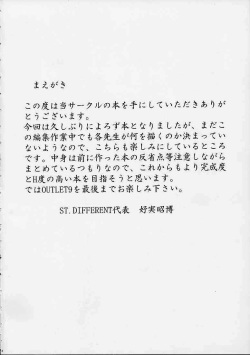 まえがき
この度は当サークルの本を手にしていただきありが
とうございます。
今回は久しぶりによろず本となりましたが、まだこ
の編集作業中でも各先生が何を描くのか決まってい
ないようなので、こちらも楽しみにしているところ
です。中身は前に作った本の反省点等注意しながら
まとめているつもりなので、これからもより完成度
とH度の高い本を目指そうと思います。
ではOUTLET9を最後までお楽しみ下さい。
ST.DIFFERENT代表 好実昭博